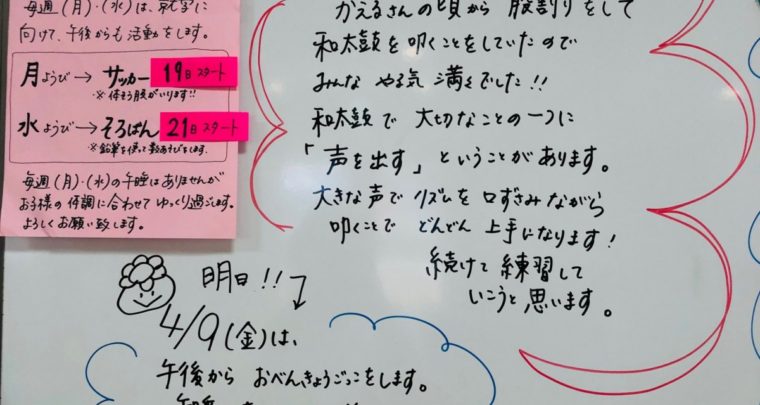 毎週(月)・(水)は、就学に
向けて、午後からも活動をします。
月ようび→サッカー 19日スタート
※体そう服がいります!!
水ようび→そろばん 21日スタート
※鉛筆を使って数あそびをします。
毎週(月)・(水)の午睡はありませんが
お子様の体調に合わせてゆっくり過ごします。
よろしくお願い致します。
かえるさんの頃から 股割りをして
和太鼓を叩くことをしていたので
みんな やる気 満々でした!!
和太鼓で 大切なことの一つに
「声を出す」ということがあります。
大きな声で リズムを口ずさみながら
叩くことで どんどん 上手になります!
続けて練習して
いこうと思います。
明日!!
4/9(金)は、
午後から おべんきょうごっこをします。